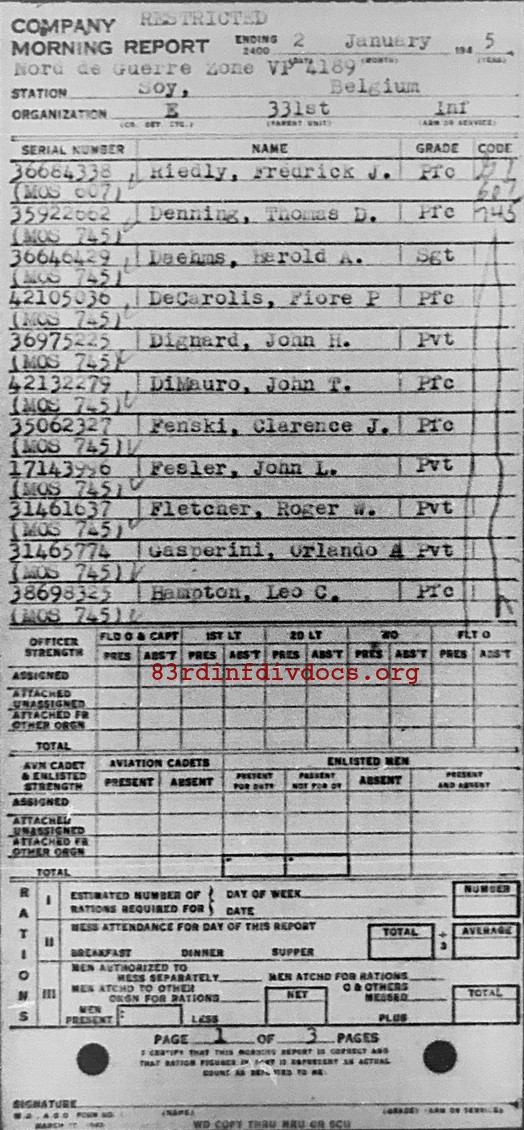 COMPANY RESTRICTED
MORNING REPORT ENDING 2400 2 January 194 5
(DATE) (MONTH) (YEAR)
Nord de Guerre Zone VP 4189
STATION Soy, Belgium
ORGANIZATION E 331st Inf
(CO. DET. ETC.) (PARENT UNIT) (ARM OR SERVICE)
SERIAL NUMBER NAME GRADE CODE
36684338 Riedly, Fredrick J. Pfc
(MOS 607) 607
35922662 Denning, Thomas D. Pfc 745
(MOS 745)
36646429 Daehms, Harold A. Sgt
(MOS 745)
42105036 DeCarolis, Fiore P Pfc
(MOS 745)
36975225 Dignard, John H. Pvt
(MOS 745)
42132279 DiMauro, John T. Pfc
(MOS 745)
35062327 Fenski, Clarence J. Pfc
(MOS 745)
17143996 Fesler, John L. Pvt
(MOS 745)
31461637 Fletcher, Roger W. Pvt
(MOS 745)
31465774 Gasperini, Orlando A Pvt
(MOS 745)
38698325 Hampton, Leo C. Pfc
(MOS 745)
OFFICER STRENGTH FLD O & CAPT 1ST LT 2D LT WO FLT O
PRES ABS'T PRES ABS'T PRES ABS'T PRES ABS'T PRES ABS'T
ASSIGNED
83rdinfdivdocs.org
ATTACHED UNASSIGNED
ATTACHED FR OTHER ORGN
TOTAL
AVN CADET & ENLISTED STRENGTH AVIATION CADETS ENLISTED MEN
PRESENT ABSENT PRESENT FOR DUTY PRESENT NOT FOR DY ABSENT PRESENT AND ABSENT
ASSIGNED
ATTACHED UNASSIGNED
ATTACHED FR OTHER ORGN
TOTAL
RATIONS
I ESTIMATED NUMBER OF RATIONS REQUIRED FOR DAY OF WEEK DATE NUMBER
II MESS ATTENDANCE FOR DAY OF THIS REPORT TOTAL ÷ 3 AVERAGE
BREAKFAST DINNER SUPPER
III MEN AUTHORIZED TO MESS SEPARATELY MEN ATCHD FOR RATIONS
MEN ATCHD TO OTHER ORGN FOR RATIONS NET O & OTHERS MESSED TOTAL
MEN PRESENT LESS PLUS
PAGE 1 OF 3 PAGES
I CERTIFY THAT THIS MORNING REPORT IS CORRECT AND
THAT RATION FIGURES IN PART III REPRESENT AN ACTUAL
COUNT AS REPORTED TO ME:
SIGNATURE
(NAME) (GRADE) (ARM OR SERVICE)
W.D., A.G.O FORM NO. 1
MARCH
WD COPY THRU MRU OR SCU